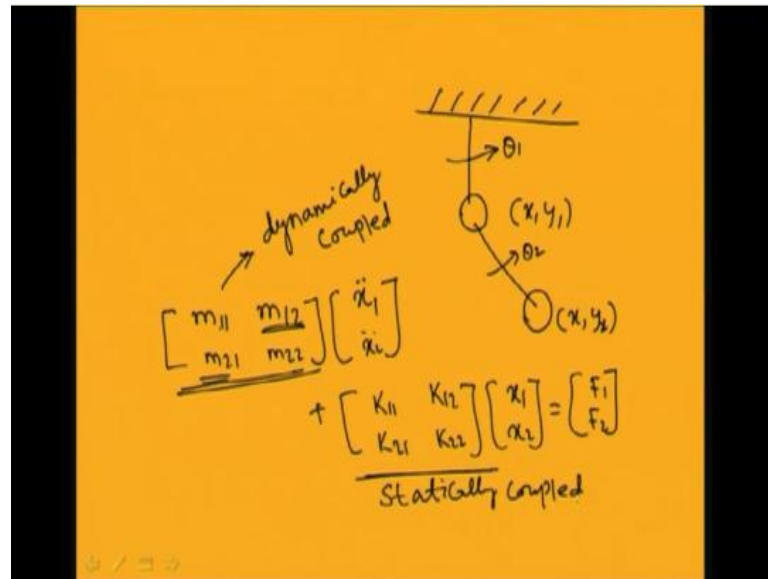 θ1
(x, y1)
θ2
(x, y2)
dynamically
coupled
[ m11 m12 ] [ ẍ1 ]
[ m21 m22 ] [ ẍ2 ]
+ [ K11 K12 ] [ x1 ] = [ F1 ]
[ K21 K22 ] [ x2 ] [ F2 ]
Statically coupled